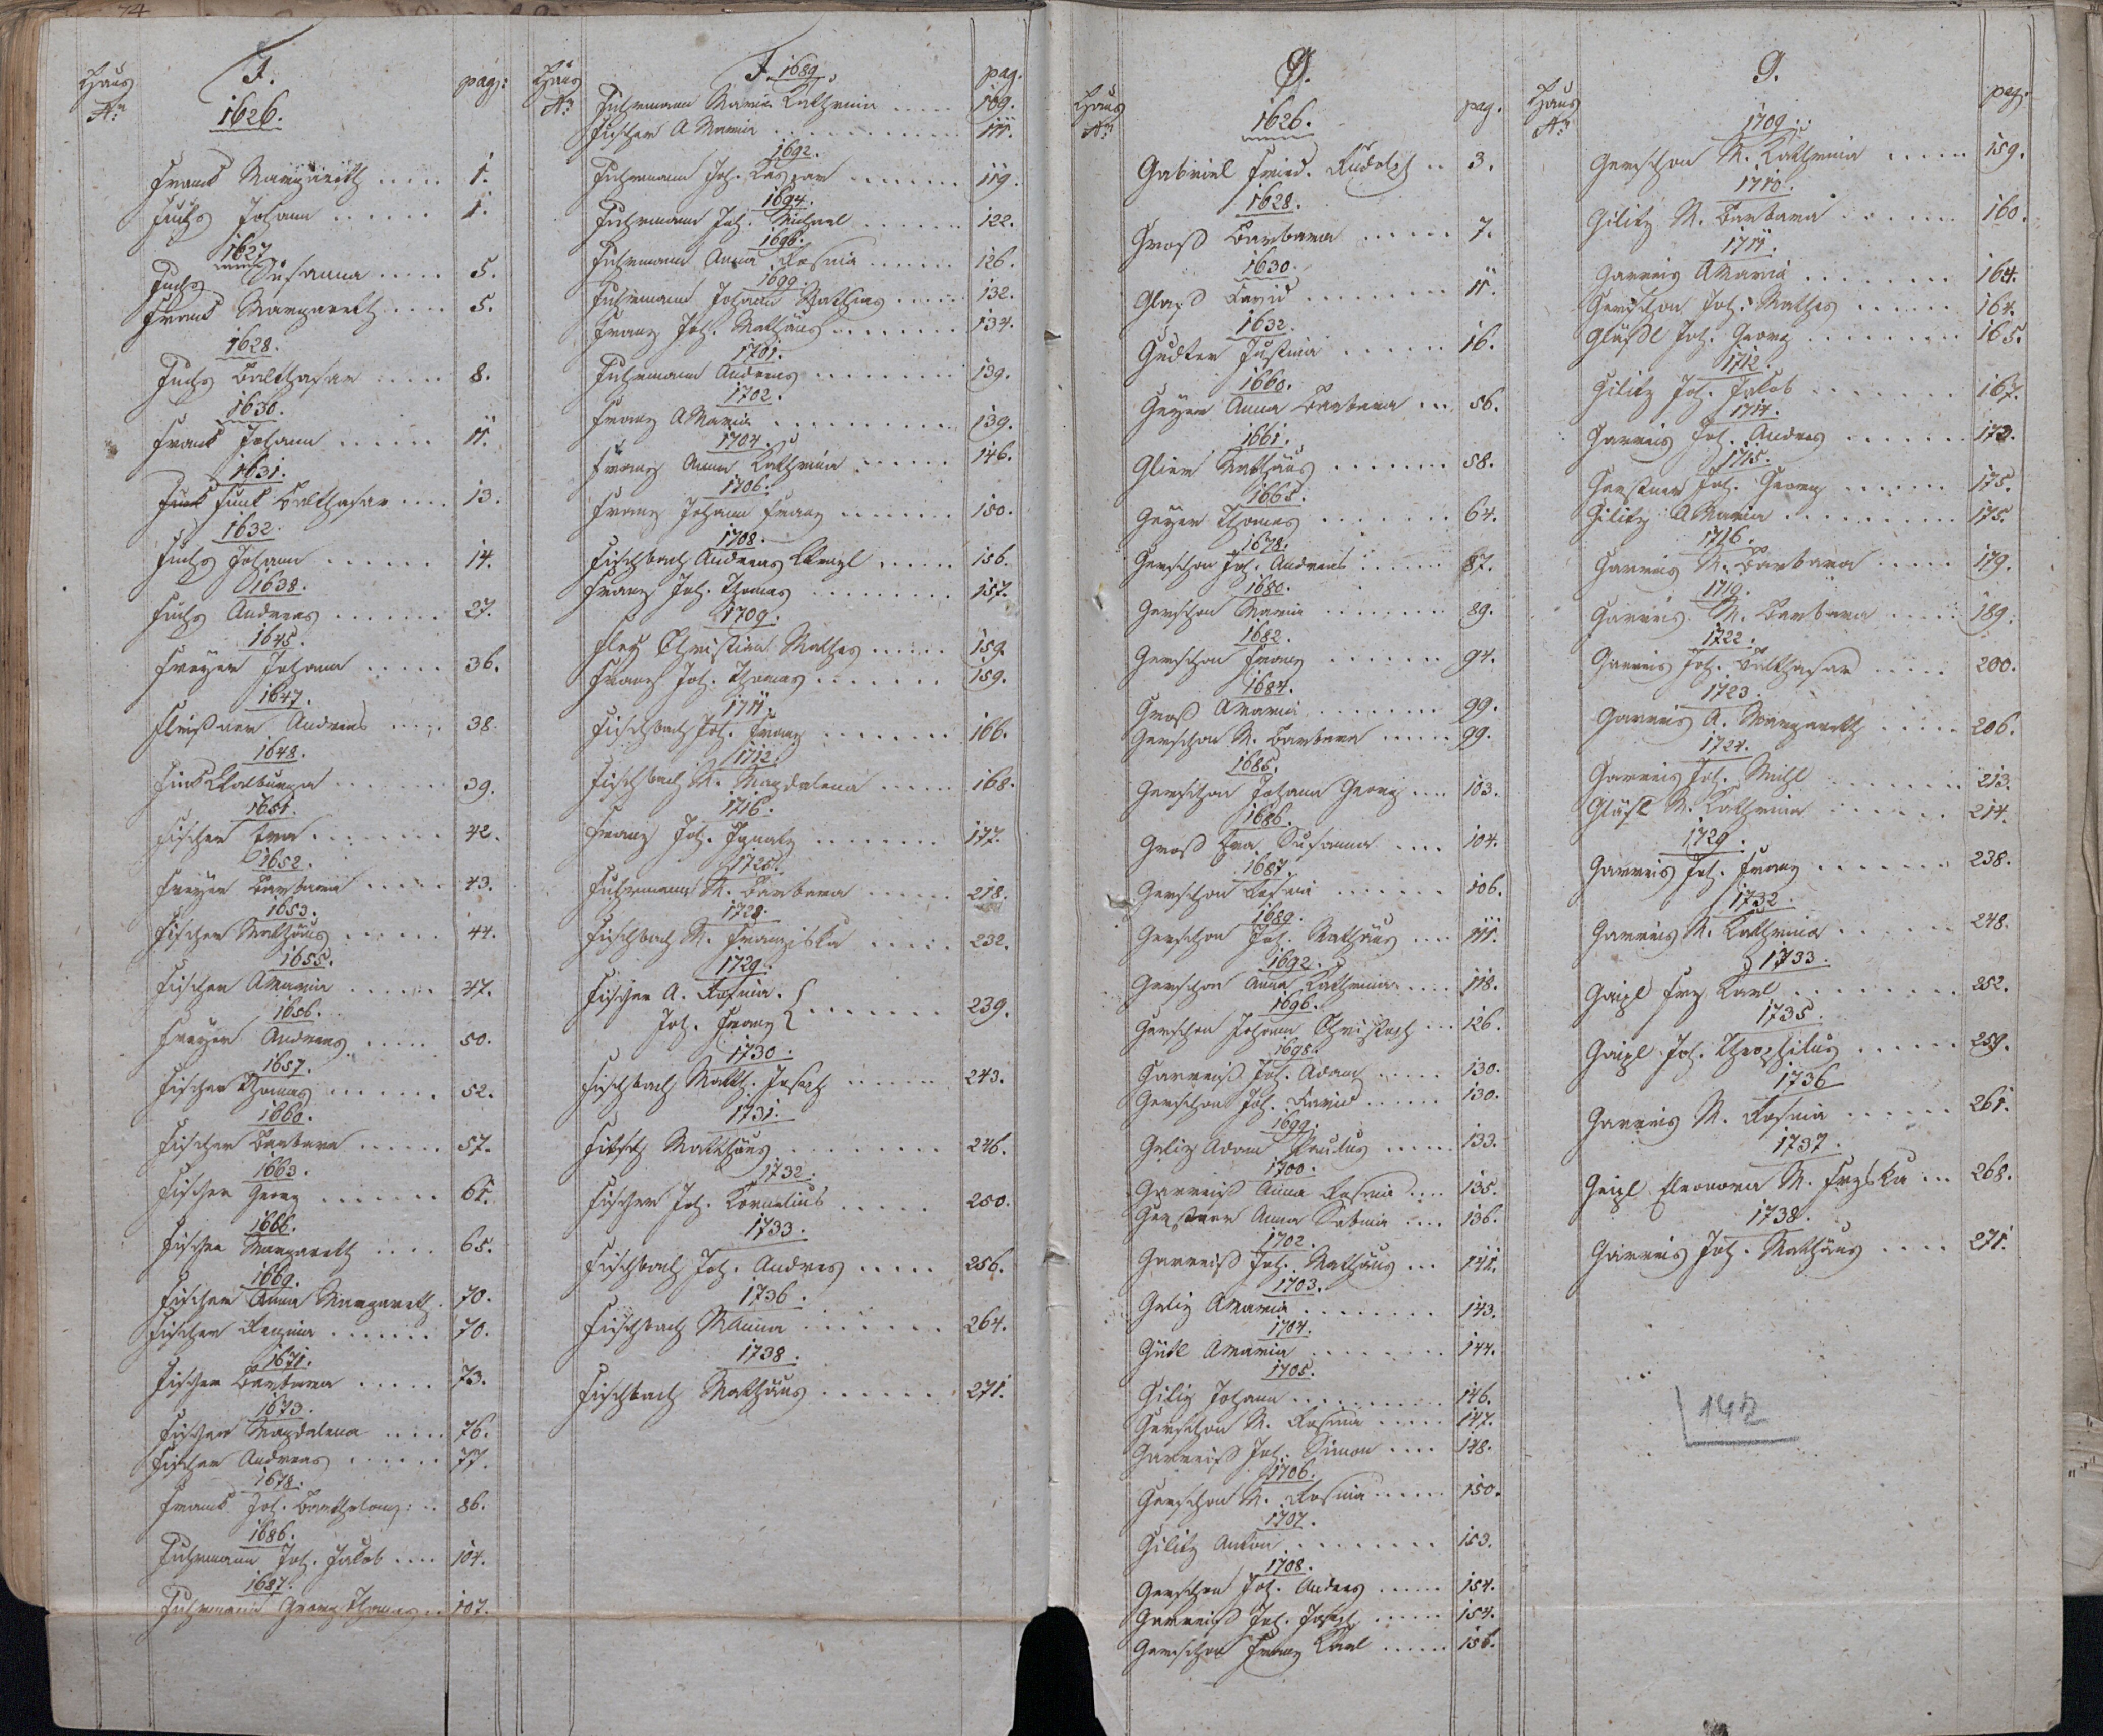 74
Haus
No
F.
pag:
1626.
Frank Margareth ..... 1.
Fuchs Johann ...... 1.
1627
Fuchs Susanna ..... 5.
Frank Margareth .... 5.
1628.
Fuchs Balthasar ..... 8.
1630.
Frank Johann ...... 11.
1631.
Funk Balthasar .... 13.
1632.
Fuchs Johann ...... 14.
1638.
Fuchs Andreas ....... 27.
1645.
Freyer Johann ..... 36.
1647.
Andreas ..... 38.
1648.
Fink Walburga ....... 39.
1651.
Fischer Eva ........ 42.
1652.
Freyer Barbara ..... 43.
1653.
Fischer Mathäus ...... 44.
1655.
Fischer AMaria ...... 47.
1656.
Freyer Andreas ..... 50.
1657.
Fischer Thomas ....... 52.
1660.
Fischer Barbara ...... 57.
1663.
Fischer Georg ....... 61.
1666.
Fischer Margareth .... 65.
1669.
Fischer Anna Margareth . 70.
Fischer Regina ....... 70.
1671.
Fischer Barbara ..... 73.
1673.
Fischer Magdalena ..... 76.
Fischer Andreas ...... 77.
1678.
Frank Joh. Bartholomä: .. 86.
1686.
Fuhrmann Joh. Jakob .... 104.
1687.
Fuhrmann Georg Thomas .. 107.
Haus
No
F.
pag.
1689.
Fuhrmann Maria Kathrina ..... 109.
Fischer A Maria ............ 111.
1692.
Fuhrmann Joh. Kaspar ........ 119.
1694.
Fuhrmann Joh. Michael ....... 122.
1696.
Fuhrmann Anna Rosina ....... 126.
1699.
Fuhrmann Johann Mathias ...... 132.
Franz Joh. Mathäus ........ 134.
1701.
Fuhrmann Andreas ......... 139.
1702.
Franz AMaria .......... 139.
1704.
Franz Anna Kathrina ...... 146.
1706.
Franz Johann Franz ....... 150.
1708.
Fischbach Andreas Wenzl ...... 156.
Franz Joh. Thomas ......... 157.
1709.
Christian Mathes ..... 159.
Franz Joh. Thomas ....... 159.
1711.
Fischbach Joh. Franz ........ 166.
1712.
Fischbach M. Magdalena ..... 168.
1716.
Franz Joh. Ignatz ........ 177.
1725.
Fuhrmann M. Barbara ...... 218.
1728.
Fischbach M. Franziska ..... 232.
1729.
Fischer A. Rosina.
Joh. Franz ....... 239.
1730.
Fischbach Math. Joseph ...... 243.
1731.
Matthäus ......... 246.
1732.
Fischer Joh. Kornelius ..... 250.
1733.
Fischbach Joh. Andres ..... 256.
1736.
Fischbach MAnna ....... 264.
1738.
Fischbach Mathäus ...... 271.
Haus
No
G.
pag.
1626.
Gabriel Fried. Rudolph .. 3.
1628.
Groß Barbara ...... 7.
1630.
David ........ 11.
1632.
Justina ...... 16.
1660.
Geyer Anna Barbara ... 56.
1661.
Mathäus ....... 58.
1665.
Geyer Thomas ....... 64.
1678.
Gerschon Joh. Andreas ...... 87.
1680.
Gerschon Maria ........ 89.
1682.
Gerschon Franz ....... 94.
1684.
Groß AMaria ........ 99.
Gerschon M. Barbara ...... 99.
1685.
Gerschon Johann Georg .... 103.
1686.
Groß Eva Susanna .... 104.
1687.
Gerschon Rosina ....... 106.
1689.
Gerschon Joh. Mathäus .... 111.
1692.
Gerschon Anna Kathrina .... 118.
1696.
Gerschon Johann Christoph ... 126.
1698.
Garreiß Joh. Adam ..... 130.
Gerschon Joh. David ...... 130.
1699.
Adam Paulus ..... 133.
1700.
Garreiß Anna Rosina .... 135.
Gerstner Anna Sabina .... 136.
1702.
Garreiß Joh. Mathäus ... 141.
1703.
AMaria ......... 143.
1704.
AMaria ........ 144.
1705.
Johann .......... 146.
Gerschon M. Rosina ..... 147.
Garreiß Joh. Simon .... 148.
1706.
Gerschon M. Rosina ..... 150.
1707.
Gilitz Anton ......... 153.
1708.
Gerschon Joh. Andres ...... 154.
Garreiß Joh. Joseph ...... 154.
Gerschon Franz Karl ...... 156.
Haus
No
G.
pag.
1709.
Gerschon M. Kathrina ..... 159.
1710.
Gilitz M. Barbara ...... 160.
1711.
Garreis AMaria ........ 164.
Gerschon Joh. Mathes ...... 164.
Joh. Georg ......... 165.
1712.
Gilitz Joh. Jakob ....... 167.
1714.
Garreis Joh. Andres .......
1715.
Gerstner Joh. Georg ....... 175.
Gilitz AMaria .......... 175.
1716.
Garreis M. Barbara ..... 179.
1719.
Garreis M. Barbara ..... 189.
1722.
Garreis Joh. Balthasar ..... 200.
1723.
Garreis A. Margareth ..... 206.
1724.
Garreis Joh. Michl ....... 213.
M. Kathrina ...... 214.
1729.
Garreis Joh. Franz ....... 238.
1732.
Garreis M. Kathrina ...... 248.
1733.
Gaipl Frz Karl ......... 252.
1735.
Gaipl Joh. Theophilus ...... 259.
1736
Garreis M. Rosina ...... 261.
1737.
Geipl Eleonora M. Frzska ... 268.
1738.
Garreis Joh. Mathäus .... 271.
142